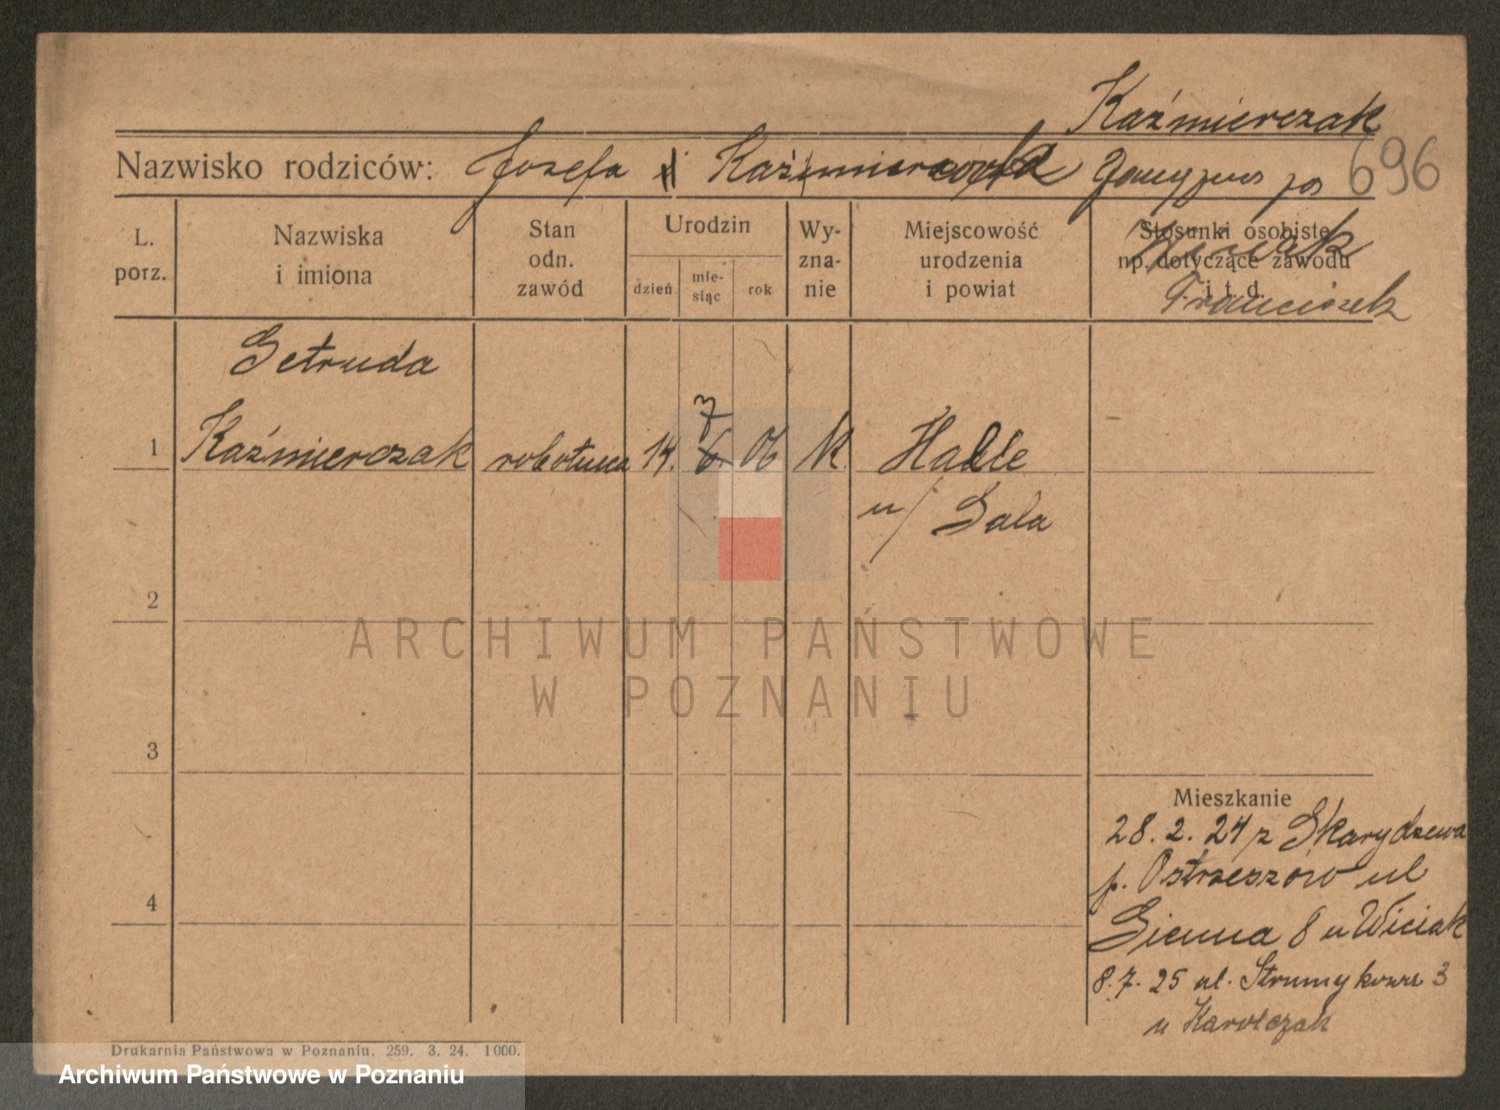 Kaźmierczak
Nazwisko rodziców: Józefa Kaźmierczak 696
L. porz.
Nazwiska i imiona
Stan odn. zawód
Urodzin
dzień
mie-siąc
rok
Wy-zna-nie
Miejscowość urodzenia i powiat
Stosunki osobiste np. dotyczące zawodu i t. d.
Franciszek
Getruda
1 Kaźmierczak robotnica 14. 6. 7 06 k. Halle
n/ Sala
2
ARCHIWUM PAŃSTWOWE
W POZNANIU
3
Mieszkanie
28. 2. 24 z Skarydzewa
p. Ostrzeszów ul
4
Sienna 8 u Wiciak
8. 7. 25 ul. Strumykowa 3
u Karolczak
Drukarnia Państwowa w Poznaniu. 259. 3. 24. 1000.
Archiwum Państwowe w Poznaniu